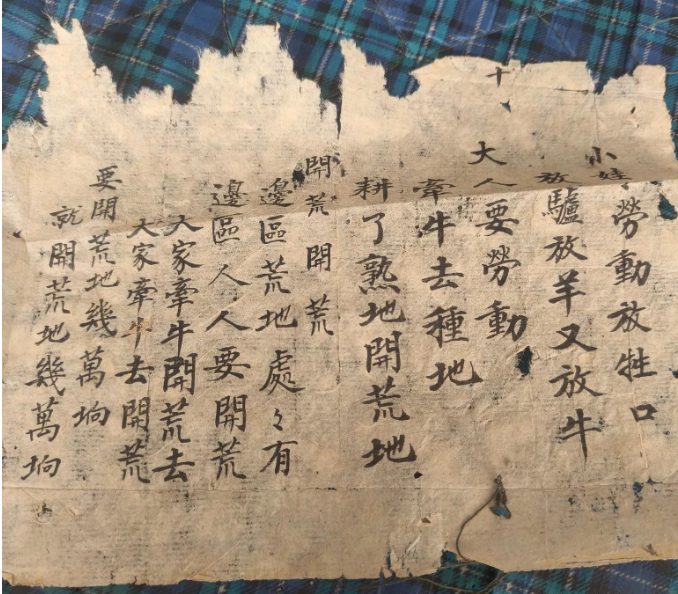 十
小娃勞動放牲口
放驢放羊又放牛
大人要勞動
牽牛去種地
耕了熟地開荒地
開荒開荒
邊區荒地處々有
邊區人人要開荒
大家牽牛開荒去
大家牽牛去開荒
要開荒地幾萬垧
就開荒地幾萬垧